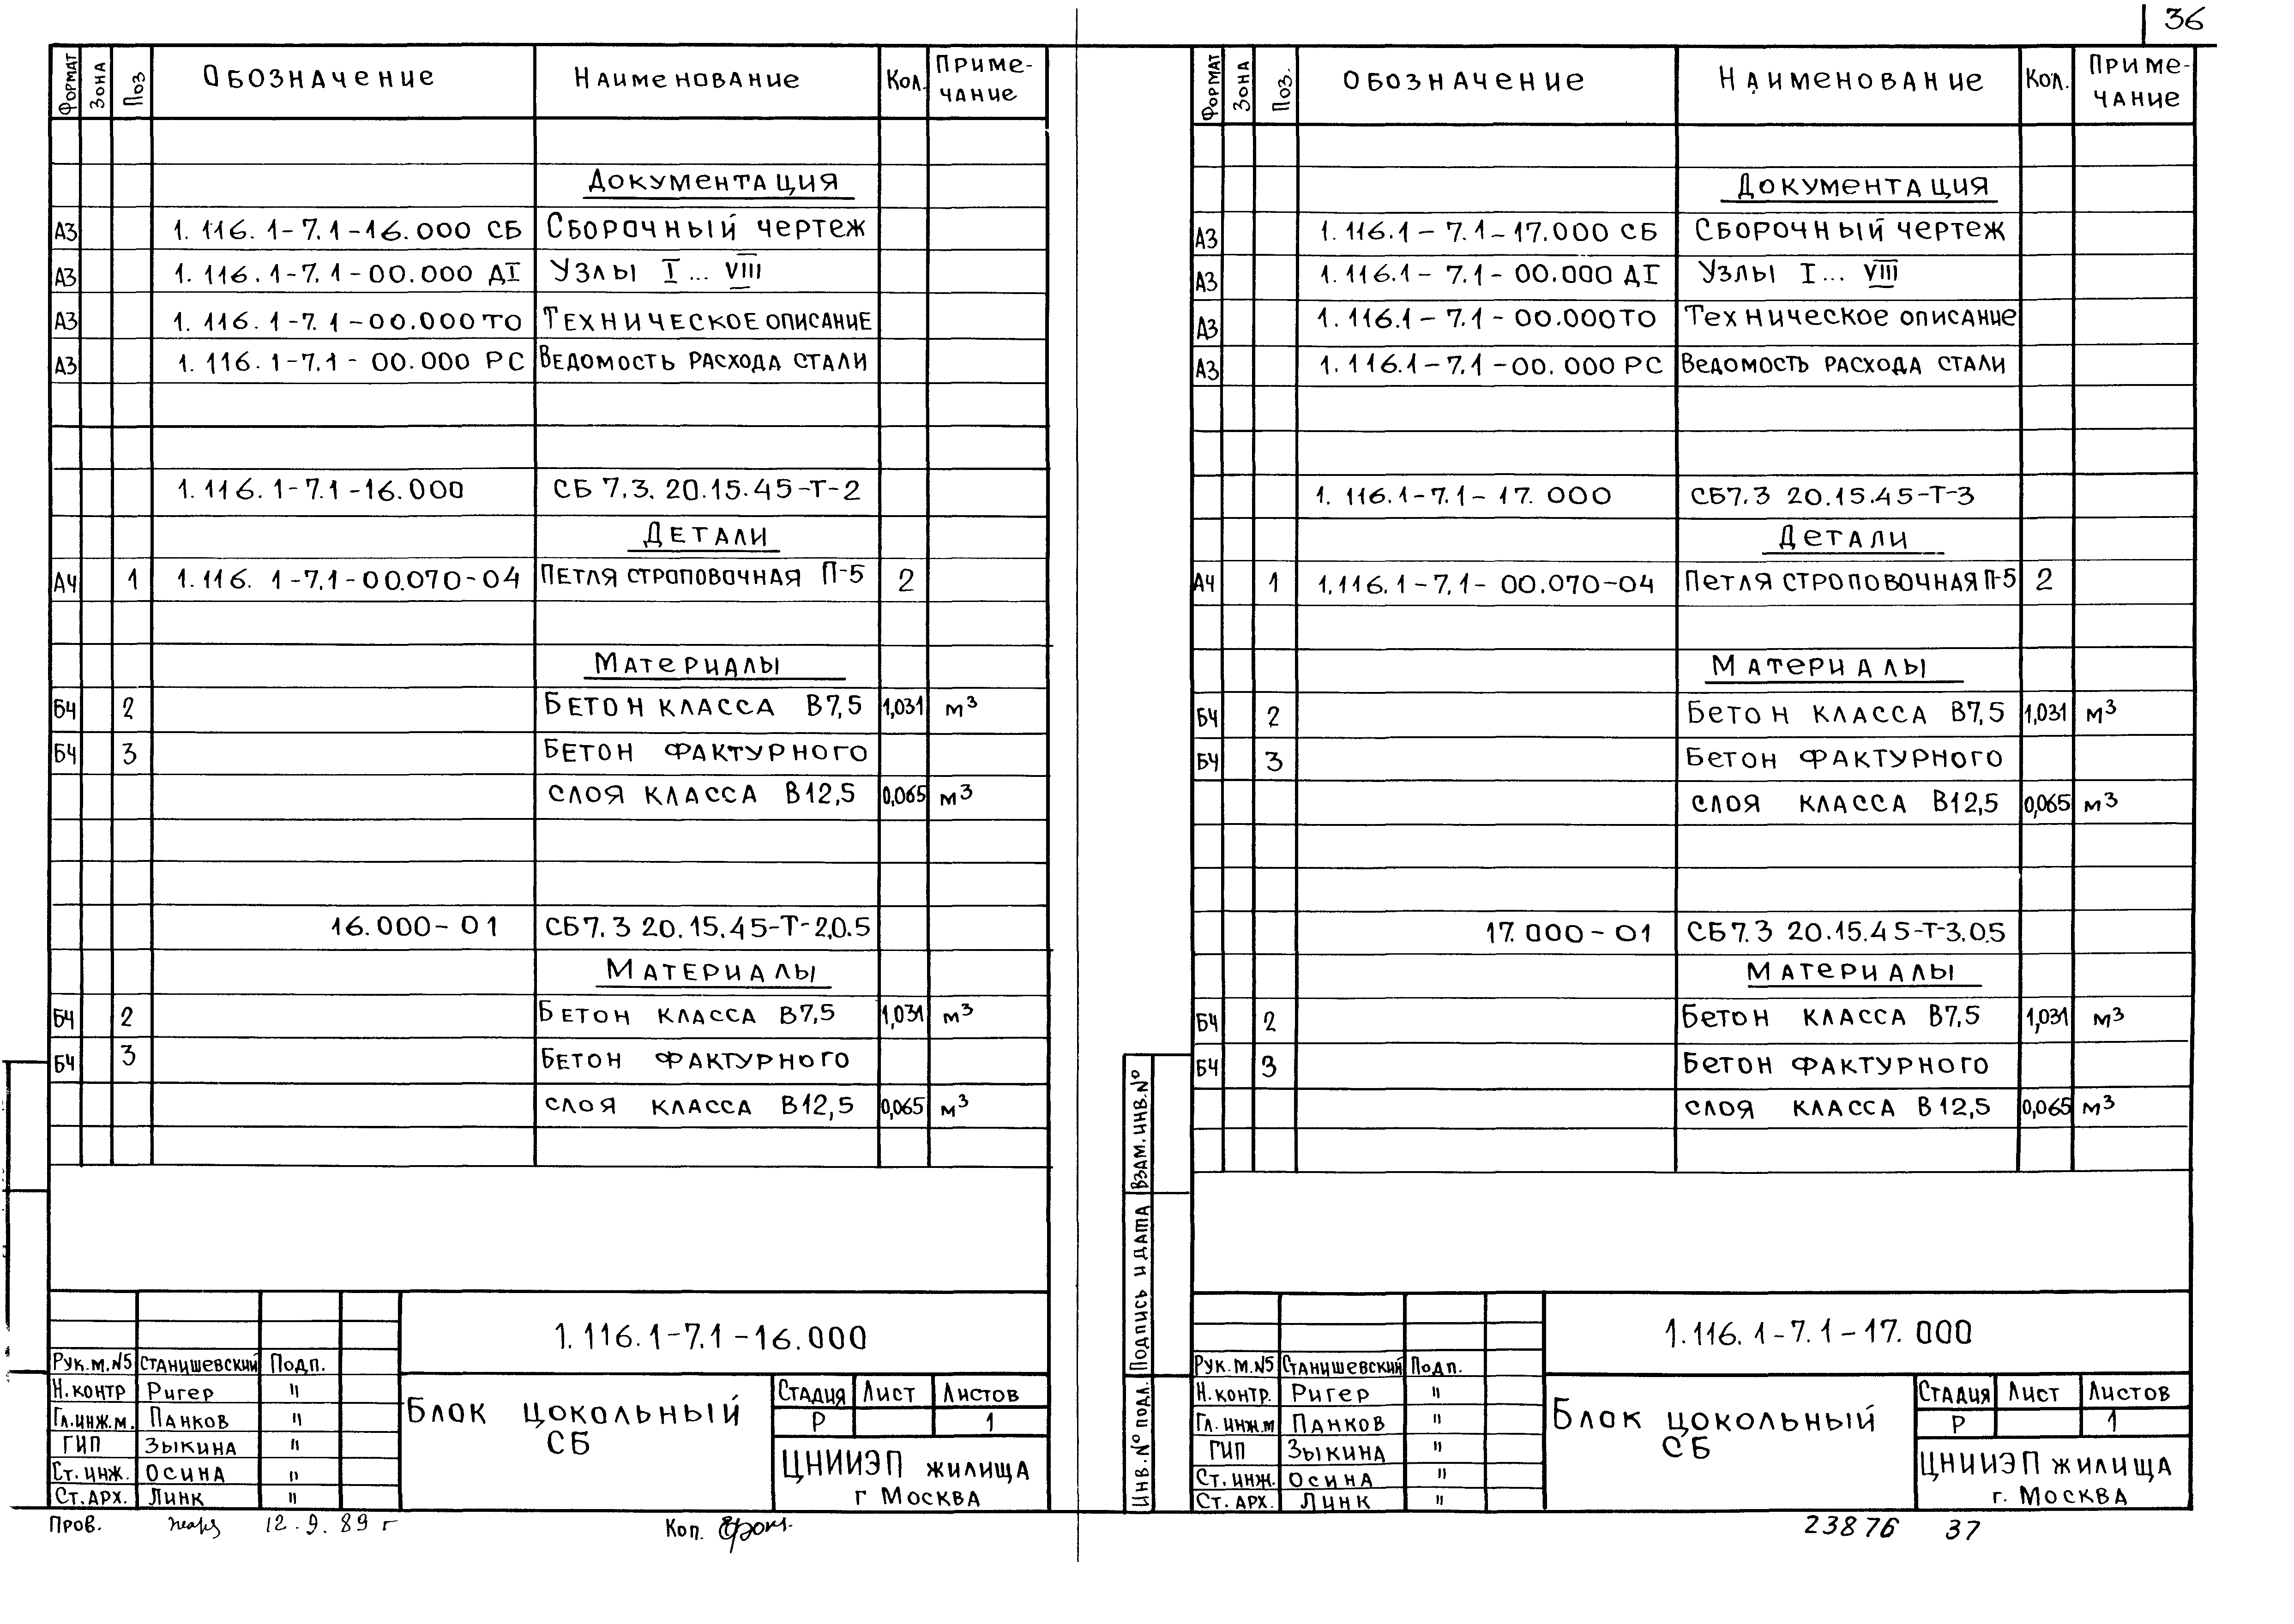 36
Формат Зона Поз Обозначение Наименование Кол. Приме-
чание
Документация
А3 1.116.1-7.1-16.000 СБ Сборочный чертеж
А3 1.116.1-7.1-00.000 ДI Узлы I ... VIII
А3 1.116.1-7.1-00.000ТО Техническое описание
А3 1.116.1-7.1-00.000 РС Ведомость расхода стали
1.116.1-7.1-16.000 СБ 7.3.20.15.45-Т-2
Детали
А4 1 1.116.1-7.1-00.070-04 Петля строповочная П-5 2
Материалы
БЧ 2 Бетон класса В7,5 1,031 м³
БЧ 3 Бетон фактурного
слоя класса В12,5 0,065 м³
16.000-01 СБ7.3 20.15.45-Т-2,0.5
Материалы
БЧ 2 Бетон класса В7,5 1,031 м³
БЧ 3 Бетон фактурного
слоя класса В12,5 0,065 м³
1.116.1-7.1-16.000
Рук.м.№5 Станишевский Подп.
Н.контр Ригер "
Гл.инж.м. Панков "
ГИП Зыкина "
Ст.инж. Осина "
Ст.арх. Линк "
Блок цокольный
СБ
Стадия Лист Листов
Р 1
ЦНИИЭП жилища
г Москва
Пров. 12.9.89 г Коп.
Формат Зона Поз. Обозначение Наименование Кол. Приме-
чание
Документация
А3 1.116.1-7.1-17.000 СБ Сборочный чертеж
А3 1.116.1-7.1-00.000 ДI Узлы I ... VIII
А3 1.116.1-7.1-00.000ТО Техническое описание
А3 1.116.1-7.1-00.000 РС Ведомость расхода стали
1.116.1-7.1-17.000 СБ7.3 20.15.45-Т-3
Детали
А4 1 1.116.1-7.1-00.070-04 Петля строповочная П-5 2
Материалы
БЧ 2 Бетон класса В7,5 1,031 м³
БЧ 3 Бетон фактурного
слоя класса В12,5 0,065 м³
17.000-01 СБ7.3 20.15.45-Т-3.0.5
Материалы
БЧ 2 Бетон класса В7,5 1,031 м³
БЧ 3 Бетон фактурного
слоя класса В12,5 0,065 м³
Взам.инв.№
Подпись и дата
Инв.№ подл.
1.116.1-7.1-17.000
Рук.м.№5 Станишевский Подп.
Н.контр. Ригер "
Гл.инж.м Панков "
ГИП Зыкина "
Ст.инж. Осина "
Ст.арх. Линк "
Блок цокольный
СБ
Стадия Лист Листов
Р 1
ЦНИИЭП жилища
г. Москва
23876 37